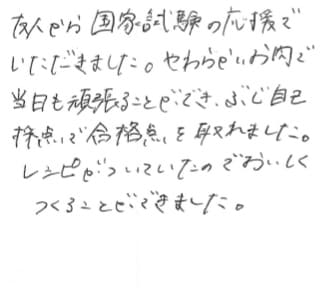 友人から国家試験の応援で
いただきました。やわらかいお肉で
当日も頑張ることができ、ぶじ自己
採点で合格点を取れました。
レシピがついていたのでおいしく
つくることができました。